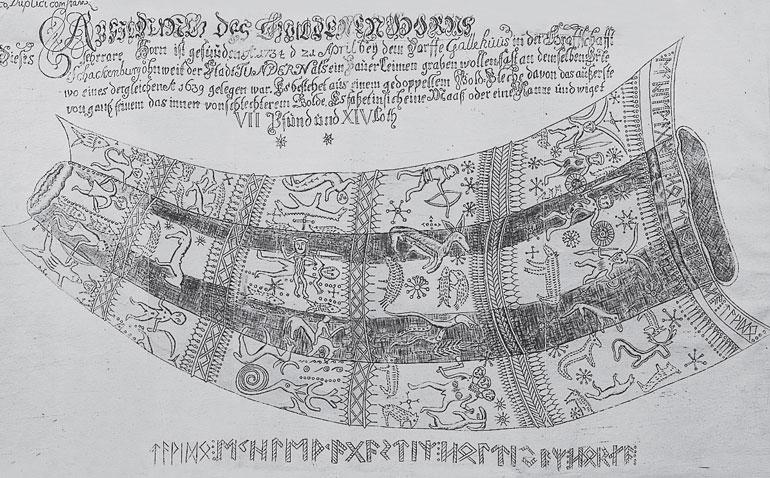 Duplici constans
Abbildung des Guldenen Horns
Dieses Horn ist gefunden A: 1734 d 21 April bey dem Dorffe Gallehuus in der Graffschafft
Schackenburg ohnweit der Stadt TUNDERN als ein Bauer Leimen graben wollen fast an demselben Orte
wo eines dergleichen A: 1639 gelegen war. Es bestehet aus einem gedoppeltem Gold-Bleche davon das äuserste
von gantz feinem das innere von schlechterem Golde. Es faßet in sich eine Maaß oder eine Kanne und wiget
VII Pfund und XIV Loth
ᛏᚨᚹᛁᛞᛟ᛬ᛖᚲᚺᛚᛖᚹᚨᚷᚨᛊᛏᛁᛉ᛬ᚺᛟᛚᛏᛁᛃᚨᛉ᛬ᚺᛟᚱᚾᚨ